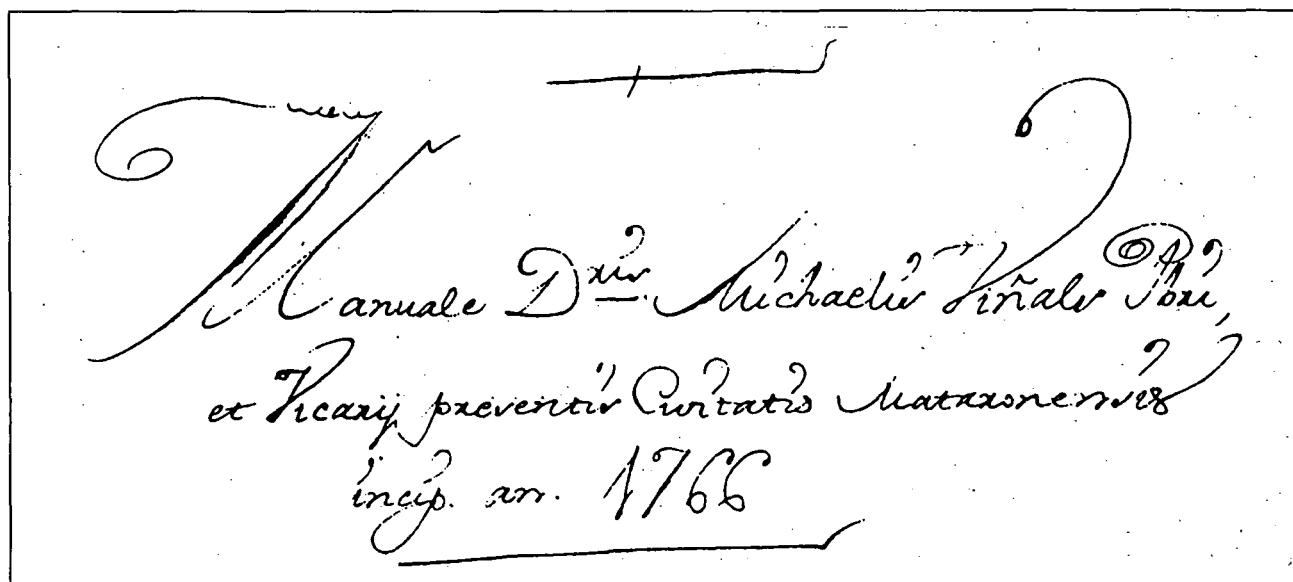 Manuale Dris. Michaelis Viñals Pbri,
et Vicarij preventis Civitatis Mataronensis
incip. an. 1766